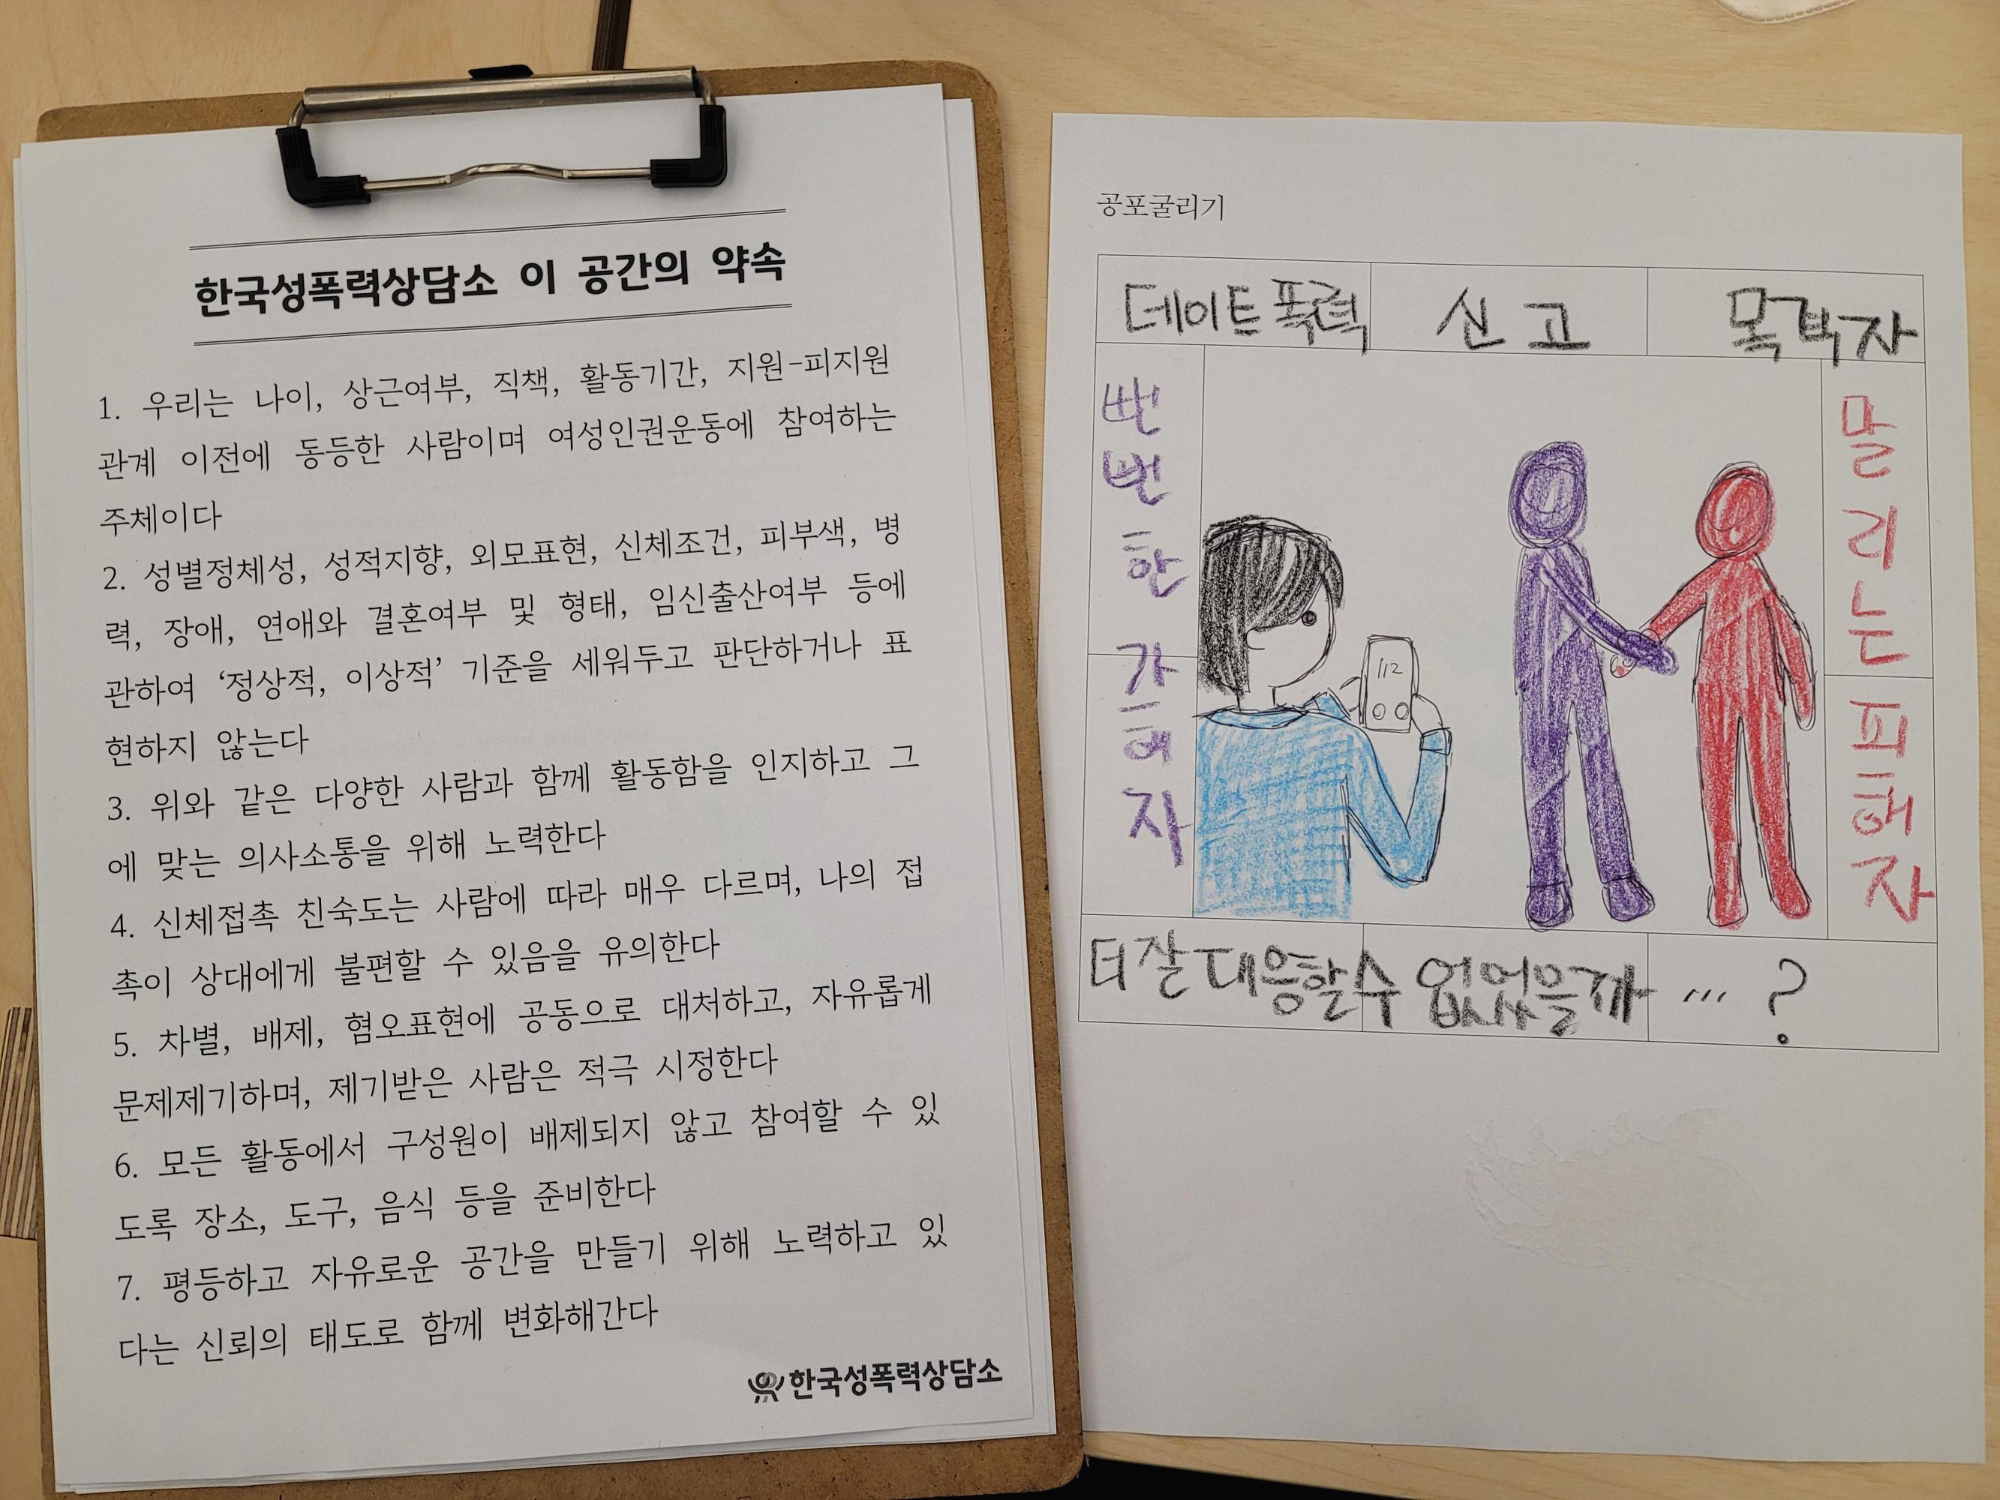 한국성폭력상담소 이 공간의 약속
1. 우리는 나이, 상근여부, 직책, 활동기간, 지원-피지원
관계 이전에 동등한 사람이며 여성인권운동에 참여하는
주체이다
2. 성별정체성, 성적지향, 외모표현, 신체조건, 피부색, 병
력, 장애, 연애와 결혼여부 및 형태, 임신출산여부 등에
관하여 ‘정상적, 이상적’ 기준을 세워두고 판단하거나 표
현하지 않는다
3. 위와 같은 다양한 사람과 함께 활동함을 인지하고 그
에 맞는 의사소통을 위해 노력한다
4. 신체접촉 친숙도는 사람에 따라 매우 다르며, 나의 접
촉이 상대에게 불편할 수 있음을 유의한다
5. 차별, 배제, 혐오표현에 공동으로 대처하고, 자유롭게
문제제기하며, 제기받은 사람은 적극 시정한다
6. 모든 활동에서 구성원이 배제되지 않고 참여할 수 있
도록 장소, 도구, 음식 등을 준비한다
7. 평등하고 자유로운 공간을 만들기 위해 노력하고 있
다는 신뢰의 태도로 함께 변화해간다
한국성폭력상담소
공포굴리기
데이트폭력 신고 목격자
뻔뻔한 가해자
112
말리는 피해자
더 잘 대응할 수 없었을까 ... ?